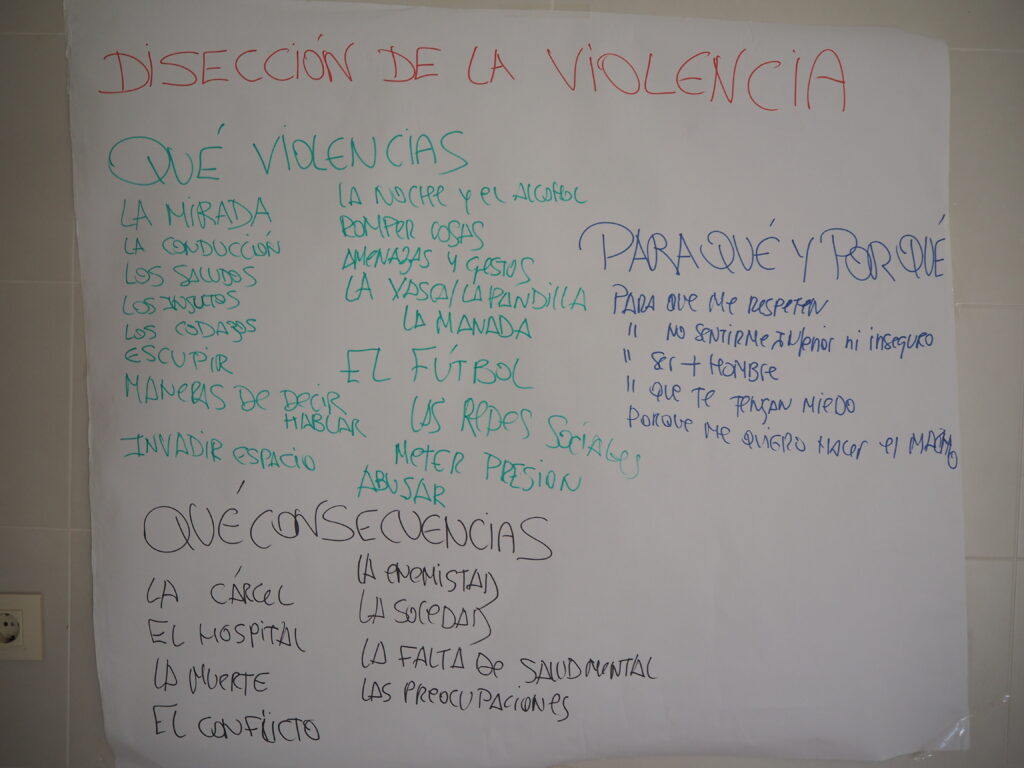 DISECCIÓN DE LA VIOLENCIA
QUÉ VIOLENCIAS
LA MIRADA
LA CONDUCCIÓN
LOS SALUDOS
LOS INSULTOS
LOS CODAZOS
ESCUPIR
MANERAS DE DECIR
HABLAR
INVADIR ESPACIO
LA NOCHE Y EL ALCOHOL
ROMPER COSAS
AMENAZAS Y GESTOS
LA YASCA/LA PANDILLA
LA MANADA
EL FÚTBOL
LAS REDES SOCIALES
METER PRESION
ABUSAR
PARA QUÉ Y POR QUÉ
PARA QUE ME RESPETEN
" NO SENTIRME INFERIOR NI INSEGURO
" SER + HOMBRE
" QUE TE TENGAN MIEDO
PORQUE ME QUIERO HACER EL MACHO
QUÉ CONSECUENCIAS
LA CÁRCEL
EL HOSPITAL
LA MUERTE
EL CONFLICTO
LA ENEMISTAD
LA SOLEDAD
LA FALTA DE SALUD MENTAL
LAS PREOCUPACIONES